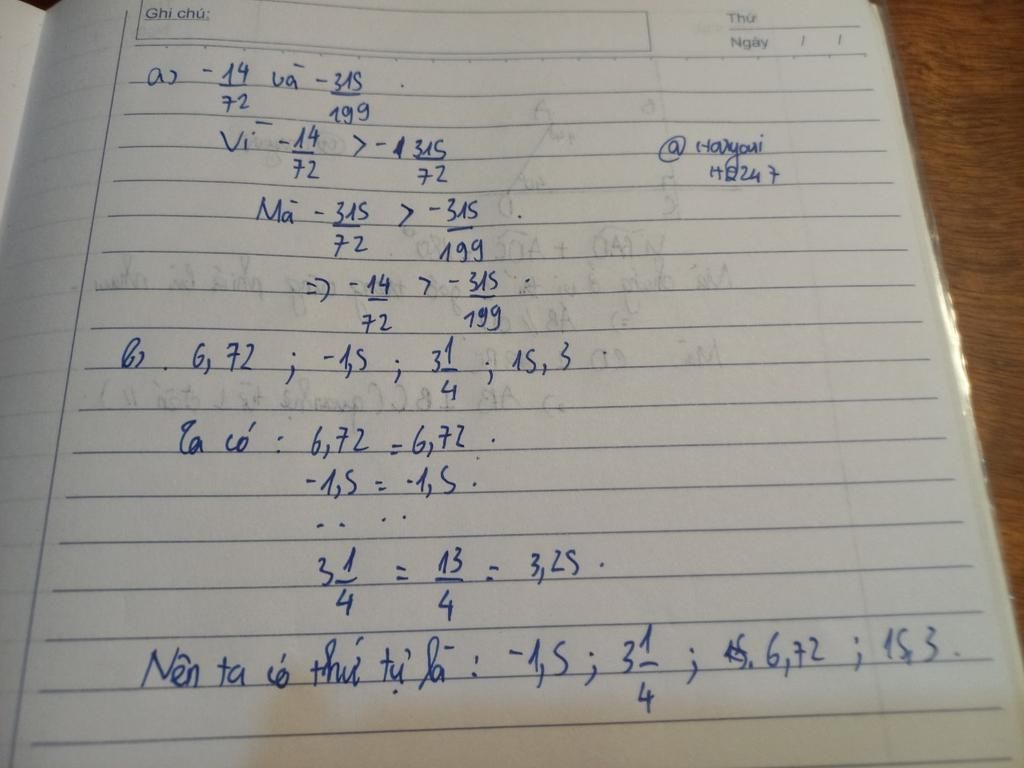 Ghi chú:
Thứ
Ngày / /
a) -14/72 và -315/199.
Vì -14/72 > -315/72
@ Haryoui
HE247
Mà -315/72 > -315/199.
=> -14/72 > -315/199.
b). 6,72 ; -1,5 ; 3 1/4 ; 15,3
Ta có : 6,72 = 6,72.
-1,5 = -1,5.
.. ..
3 1/4 = 13/4 = 3,25.
Nên ta có thứ tự là : -1,5 ; 3 1/4 ; 6,72 ; 15,3.